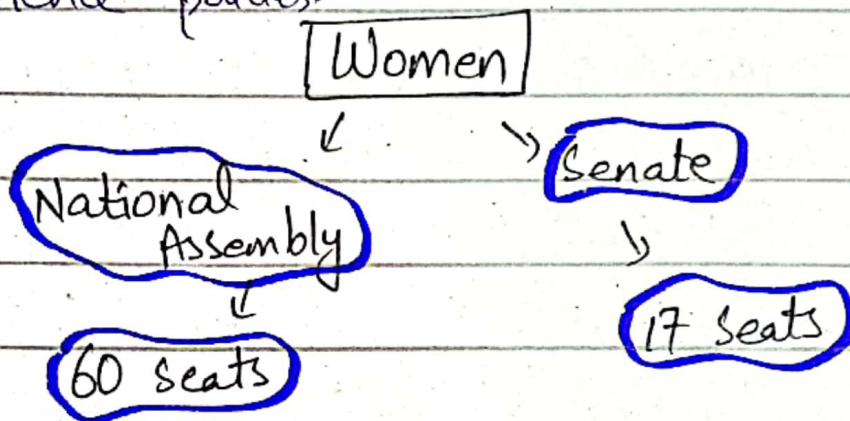 Women
National
Assembly
Senate
60 seats
17 seats